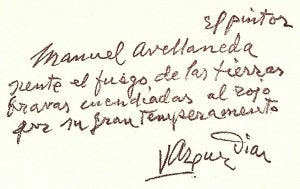 El pintor
Manuel Avellaneda
siente el fuego de las tierras
bravas encendidas al rojo
por su gran temperamento
Vázquez Díaz